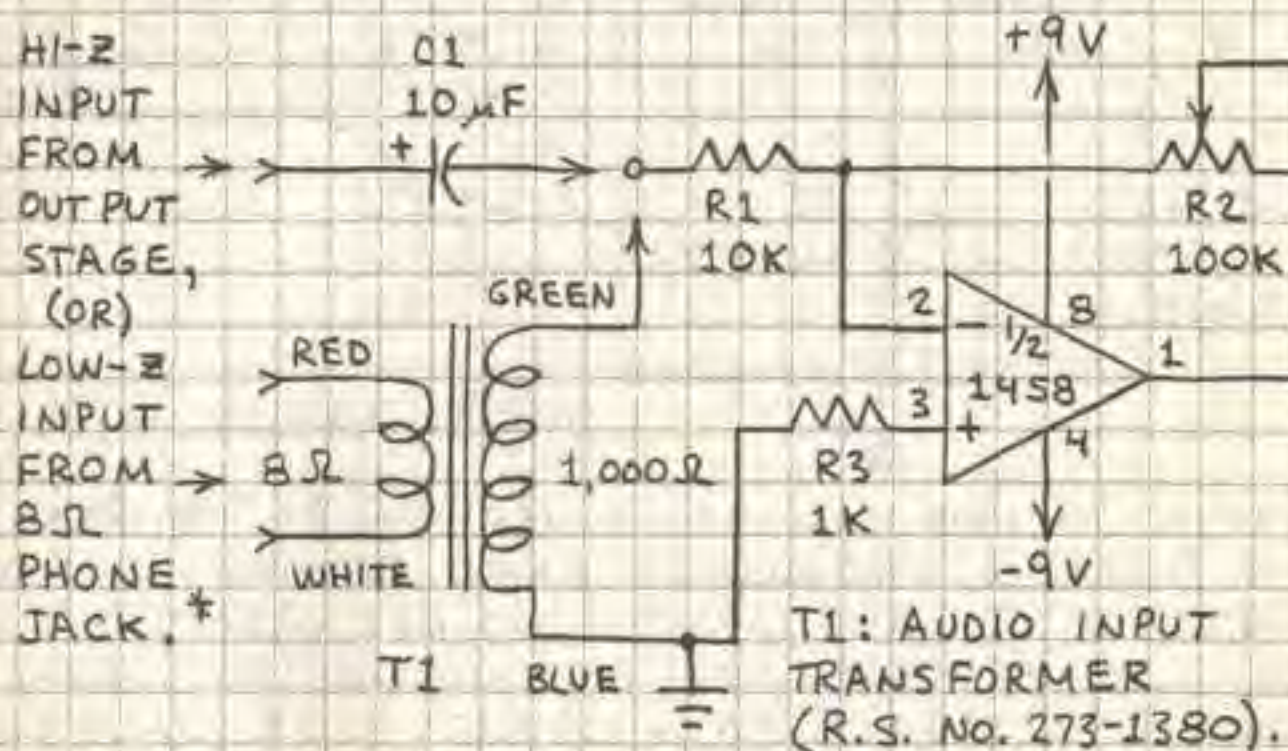 HI-Z
INPUT
FROM
OUTPUT
STAGE,
(OR)
LOW-Z
INPUT
FROM
8Ω
PHONE
JACK.*
C1
10µF
+
+9V
R1
10K
R2
100K
GREEN
RED
8Ω
WHITE
1,000Ω
T1
BLUE
2
-
1/2
8
1458
1
3
+
4
R3
1K
-9V
T1: AUDIO INPUT
TRANSFORMER
(R.S. NO. 273-1380).